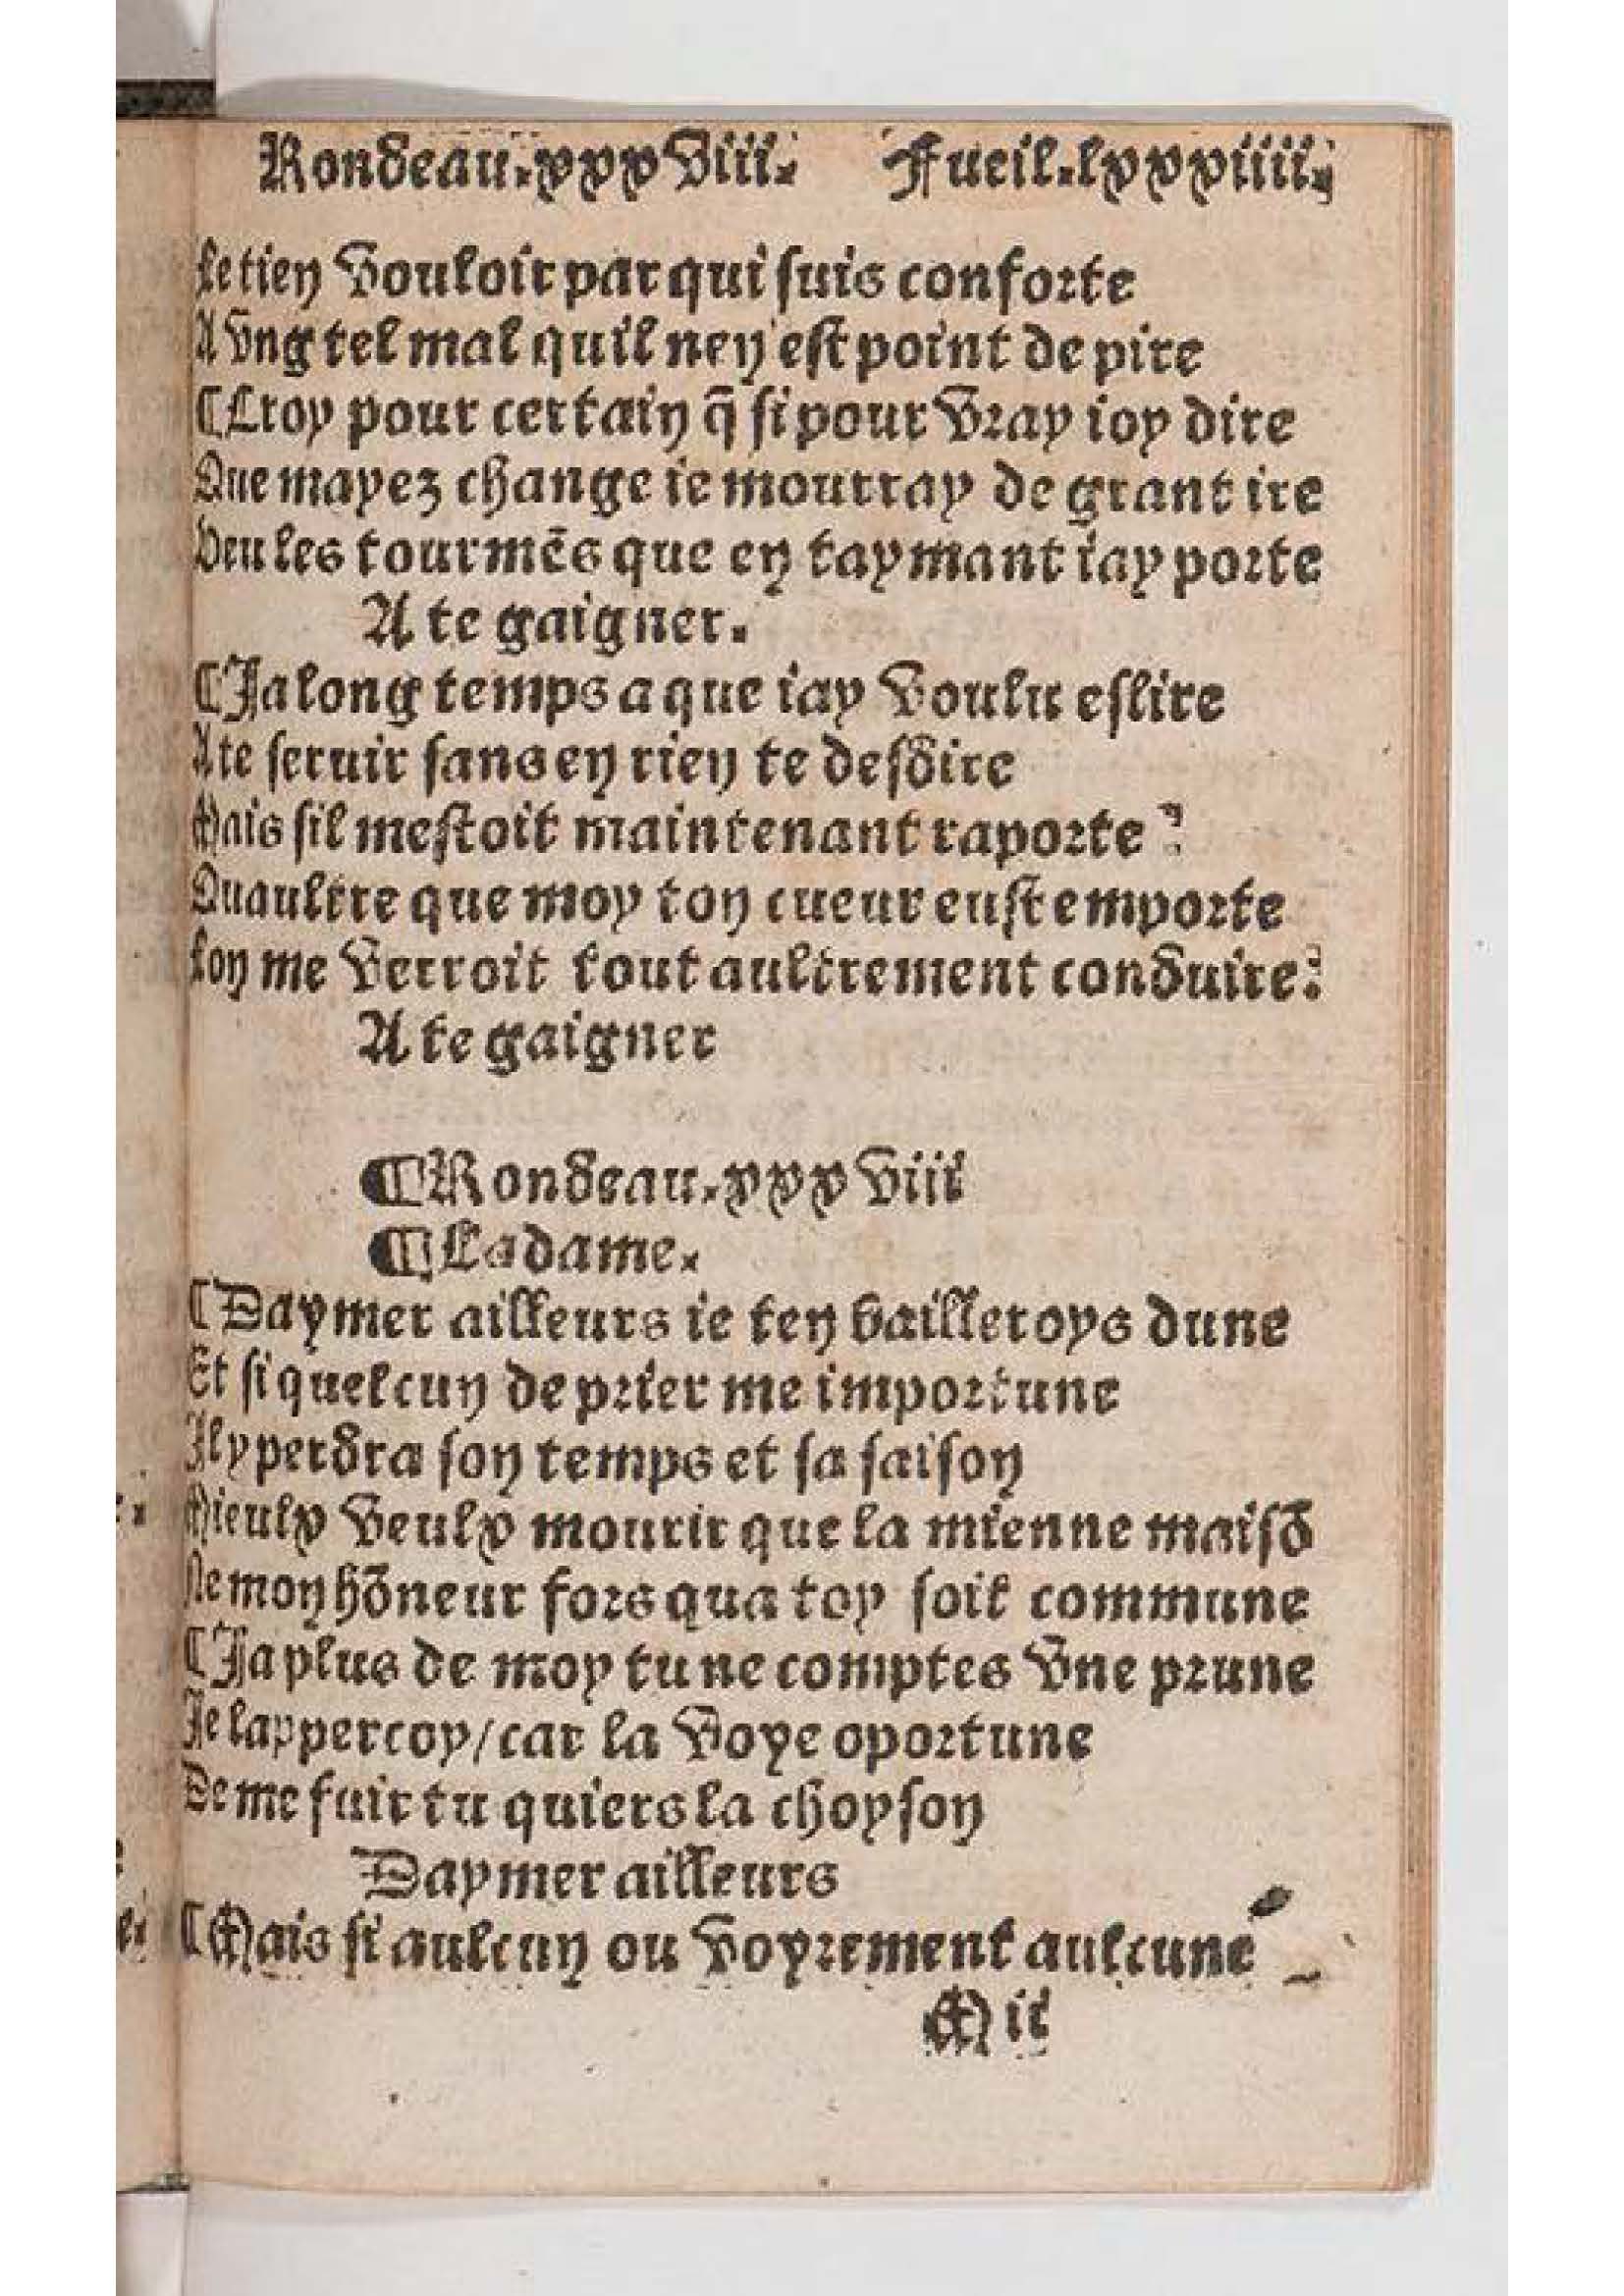 Rondeau.xxxViii. Fueil.lxxxiiii.
Le tien vouloir par qui suis conforte
A vng tel mal quil nen est point de pire
¶Croy pour certain q̃ si pour vray ioy dire
Que mayez change ie mourray de grant ire
Veu les tourmẽs que en taymant iay porte
A te gaigner.
¶Ja long temps a que iay voulu eslire
A te seruir sans en rien te desdire
Mais sil mestoit maintenant raporte ?
Quaultre que moy ton cueur eust emporte
Lon me verroit tout aultrement conduire:
A te gaigner
¶Rondeau.xxxviii
¶La dame.
¶Daymer ailleurs ie ten bailleroys dune
Et si quelcun de prier me importune
Il y perdra son temps et sa saison
Mieulx veulx mourir que la mienne maisõ
Ne mon hõneur fors qua toy soit commune
¶Ja plus de moy tu ne comptes vne prune
Je lappercoy/car la voye oportune
De me fuir tu quiers la choyson
Daymer ailleurs
¶Mais si aulcun ou voyrement aulcune
M ii